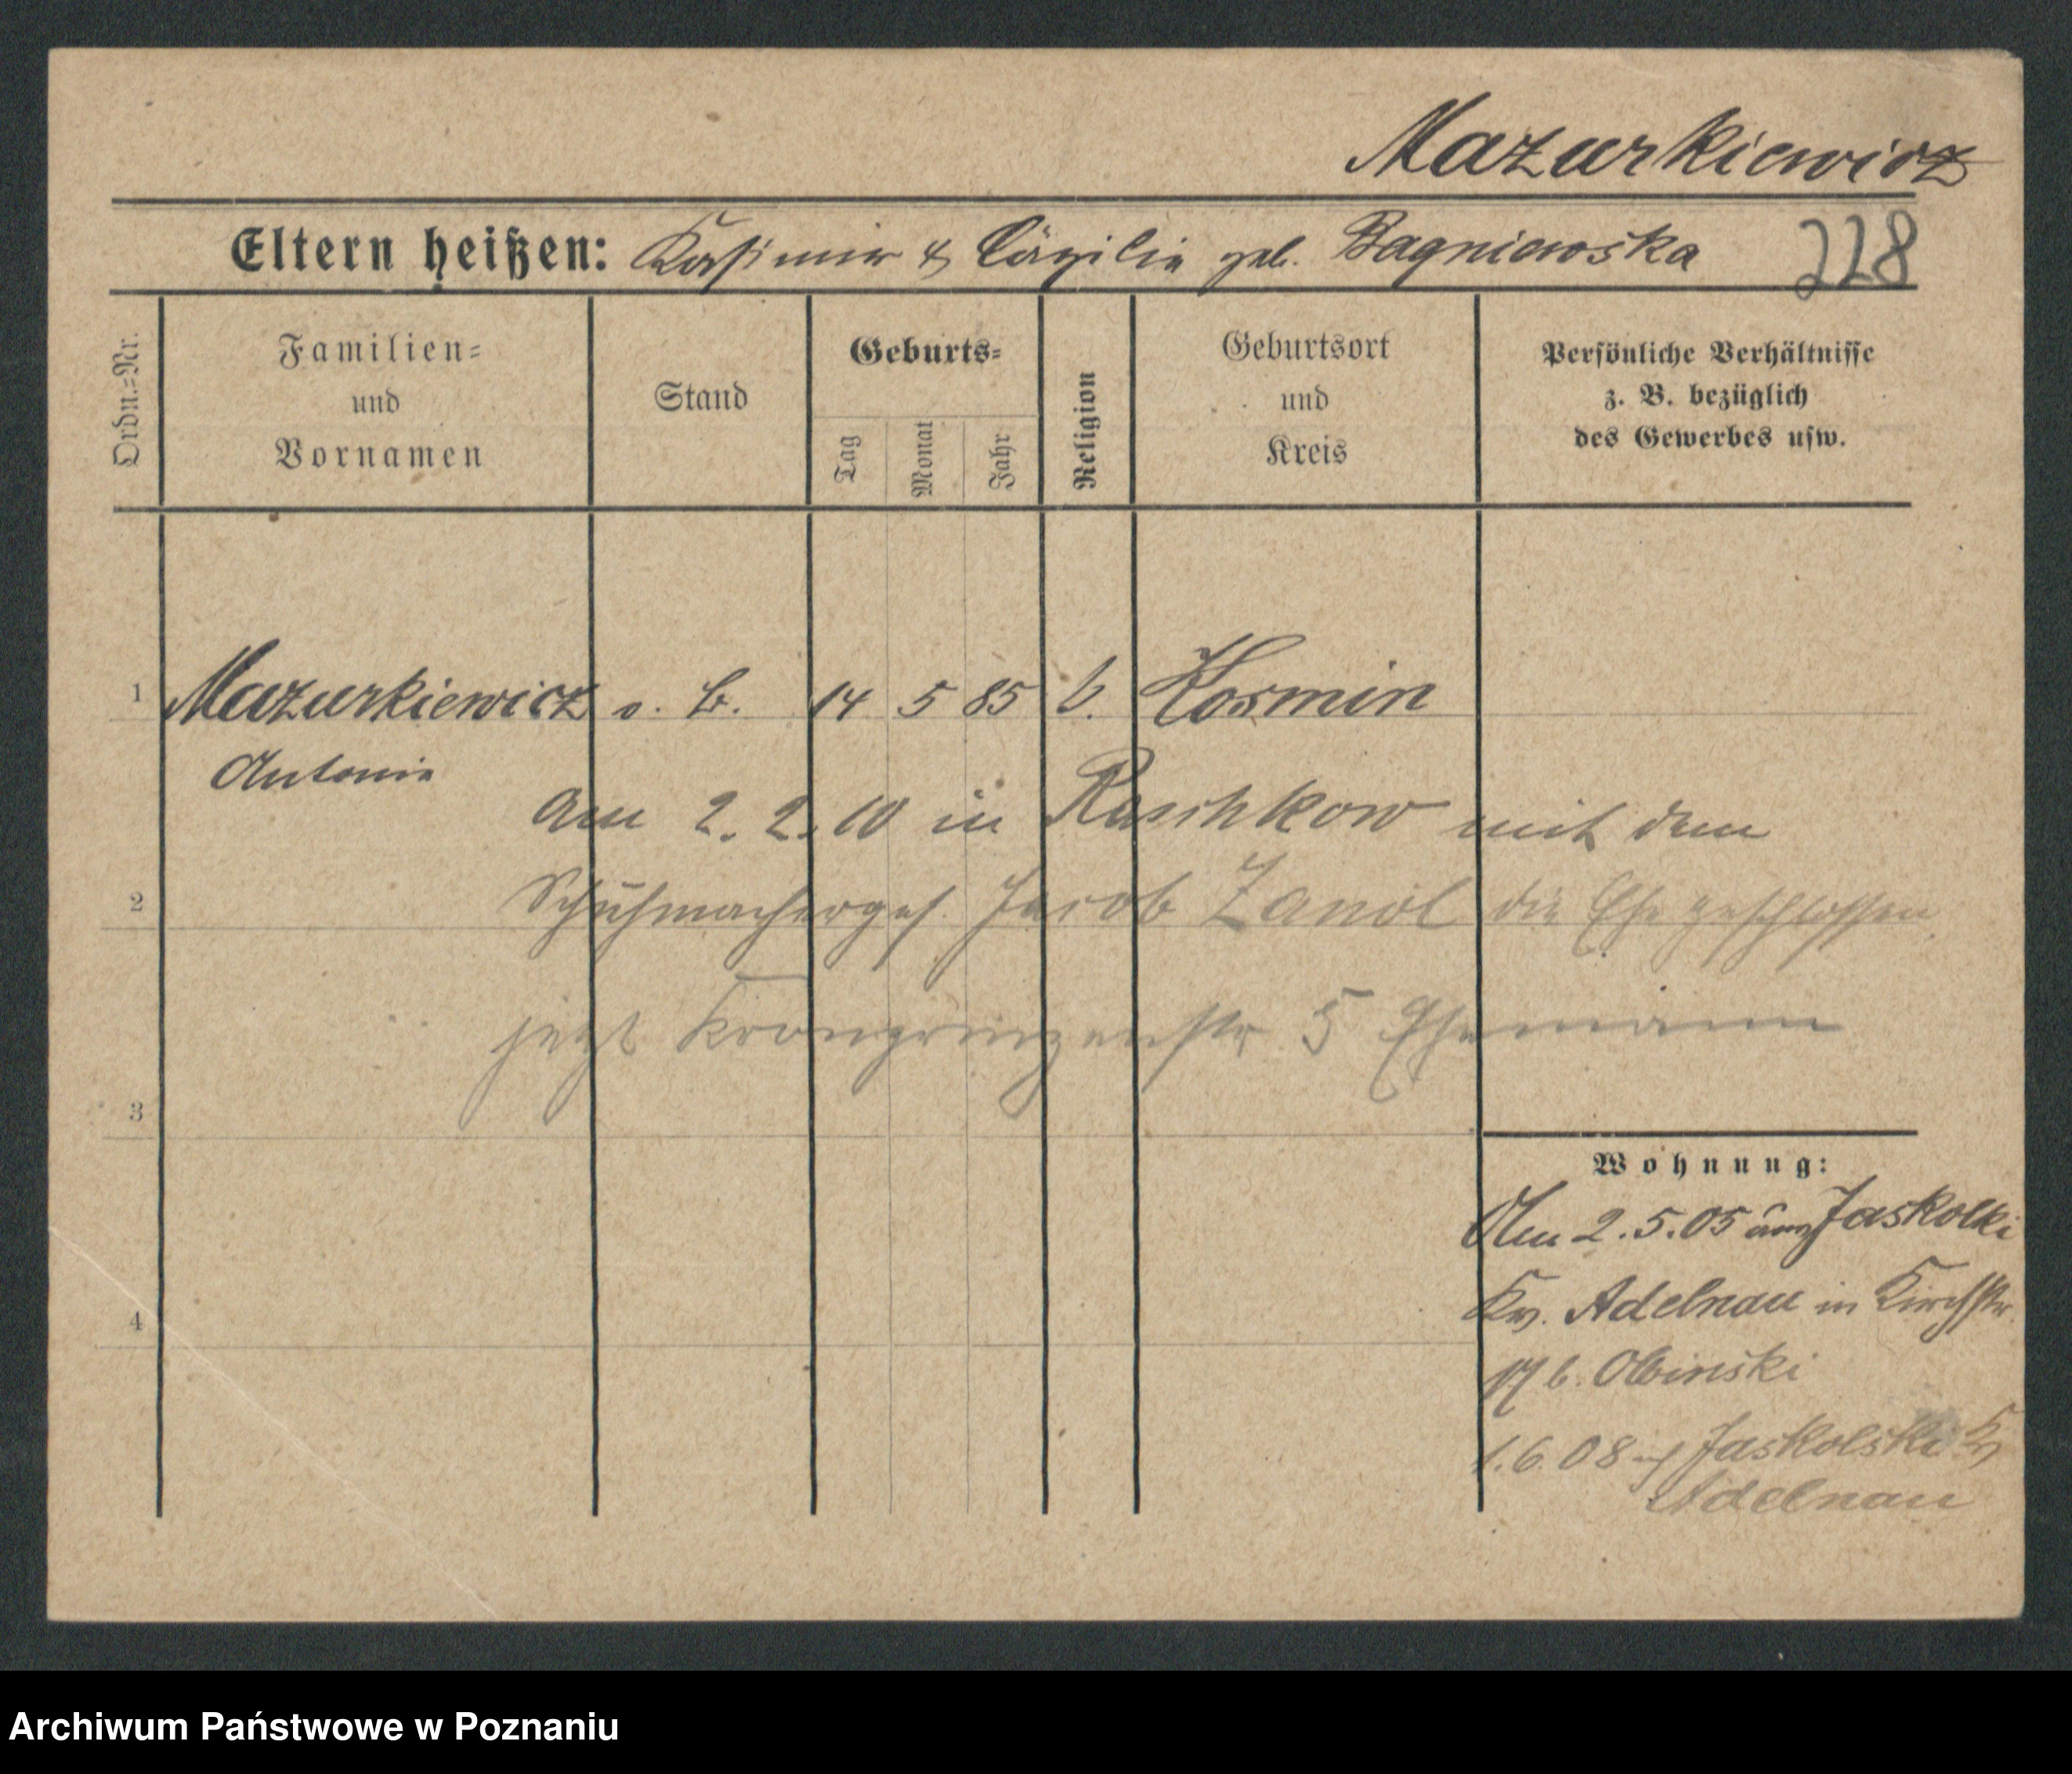 Mazurkiewicz
Eltern heißen: Kasimir & Cäzilie geb. Bagniewska
228
Ordn.=Nr.
Familien=
und
Vornamen
Stand
Geburts=
Tag
Monat
Jahr
Religion
Geburtsort
und
Kreis
Persönliche Verhältnisse
z. B. bezüglich
des Gewerbes usw.
1 Mazurkiewicz o. B. 14 5 85 Kosmin
Antonie
am 2. 2. 10 in Raschkow mit dem
2
Schuhmacherges. Jacob Zanol die Ehe geschlossen
jetzt Kronprinzenstr 5 Ehemann
3
Wohnung:
Am 2.5.05 aus Jaskolki
Kr. Adelnau in Kirchstr.
4
17 b. Olbinski
1.6.08 Jaskolski Kr
Adelnau
Archiwum Państwowe w Poznaniu